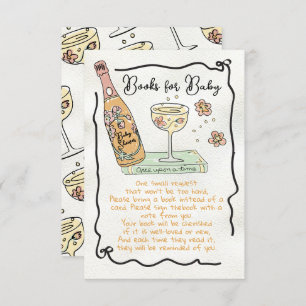 Books for Baby
Baby
Shower
Once upon a time
One small request
that won't be too hard,
Please bring a book instead of a
card. Please sign thebook with a
note from you.
Your book will be cherished
if it is well-loved or new,
And each time they read it,
they will be reminded of you.